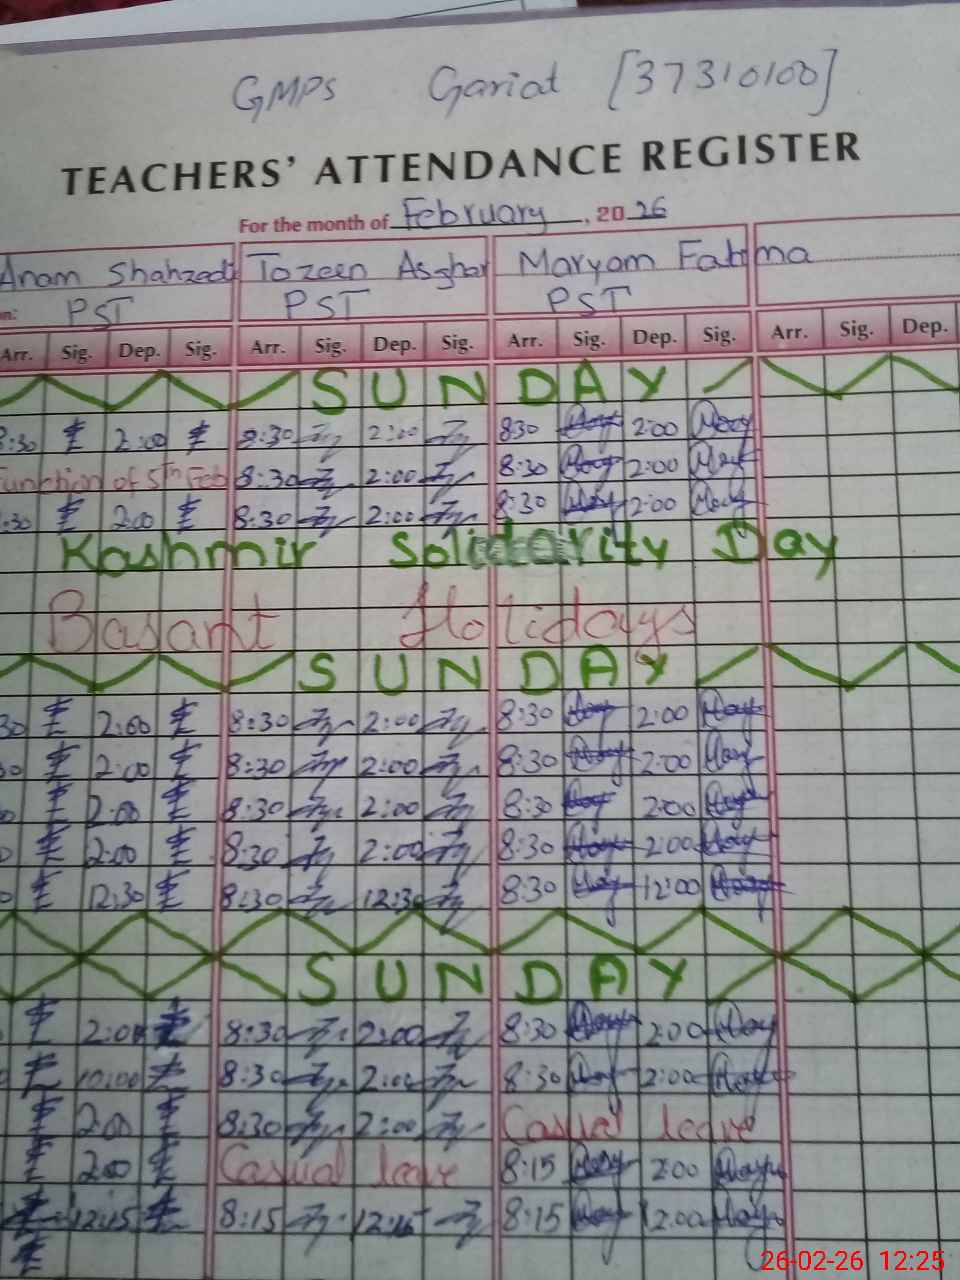 GMPS Gariat [37310100]
TEACHERS' ATTENDANCE REGISTER
For the month of February, 20 26
Anam Shahzadi Tozeen Asghar Maryam Fatima
PST PST PST
Arr. Sig. Dep. Sig. Arr. Sig. Dep. Sig. Arr. Sig. Dep. Sig. Arr. Sig. Dep.
SUNDAY
8:30 2:00 8:30 2:00 830 2:00
Function of 5th Feb 8:30 2:00 8:30 2:00
:30 2:00 8:30 2:00 8:30 2:00
Kashmir Solidarity Day
Basant Holidays
SUNDAY
30 2:00 8:30 2:00 8:30 2:00
2:00 8:30 2:00 8:30 2:00
2:00 8:30 2:00 8:30 2:00
2:00 8:30 2:00 8:30 2:00
12:30 8:30 12:30 8:30 12:00
SUNDAY
2:00 8:30 2:00 8:30 2:00
10:00 8:30 2:00 8:30 2:00
2:00 8:30 2:00 Casual leave
2:00 Casual leave 8:15 2:00
12:15 8:15 12:15 8:15 12:00
26-02-26 12:25